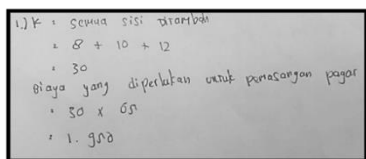 1.) K = semua sisi ditambah
= 8 + 10 + 12
= 30
Biaya yang diperlukan untuk pemasangan pagar
= 30 x 65
= 1.950